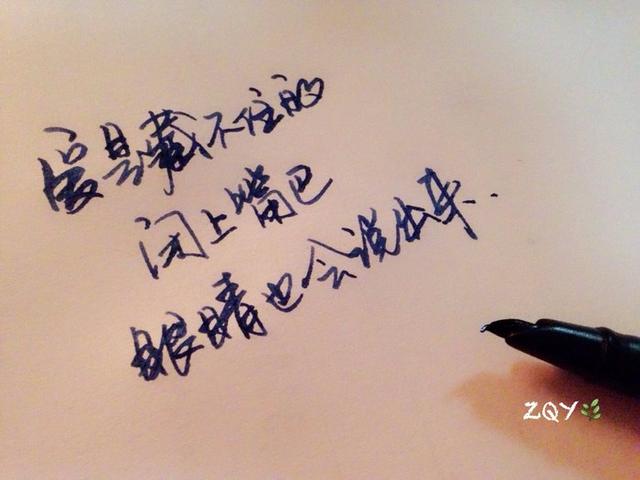 爱是藏不住的
闭上嘴巴
眼睛也会说出来.
ZQY